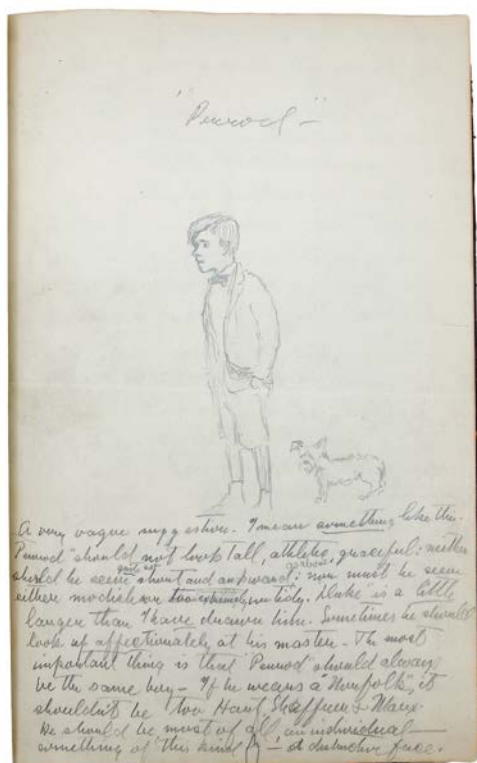 "Penrod" —
A very vague suggestion. I mean something like this.
Penrod" should not look tall, athletic, graceful: neither
should he seem quite so short and awkward; nor must he seem
either modish or too extremely untidy. Duke is a little
larger than I have drawn him. Sometimes he should
look up affectionately at his master. The most
important thing is that "Penrod" should always
be the same boy — If he wears a "Norfolk", it
shouldn't be too Hart, Shaffner & Marx.
He should be most of all an individual —
something of this kind — a distinctive face.